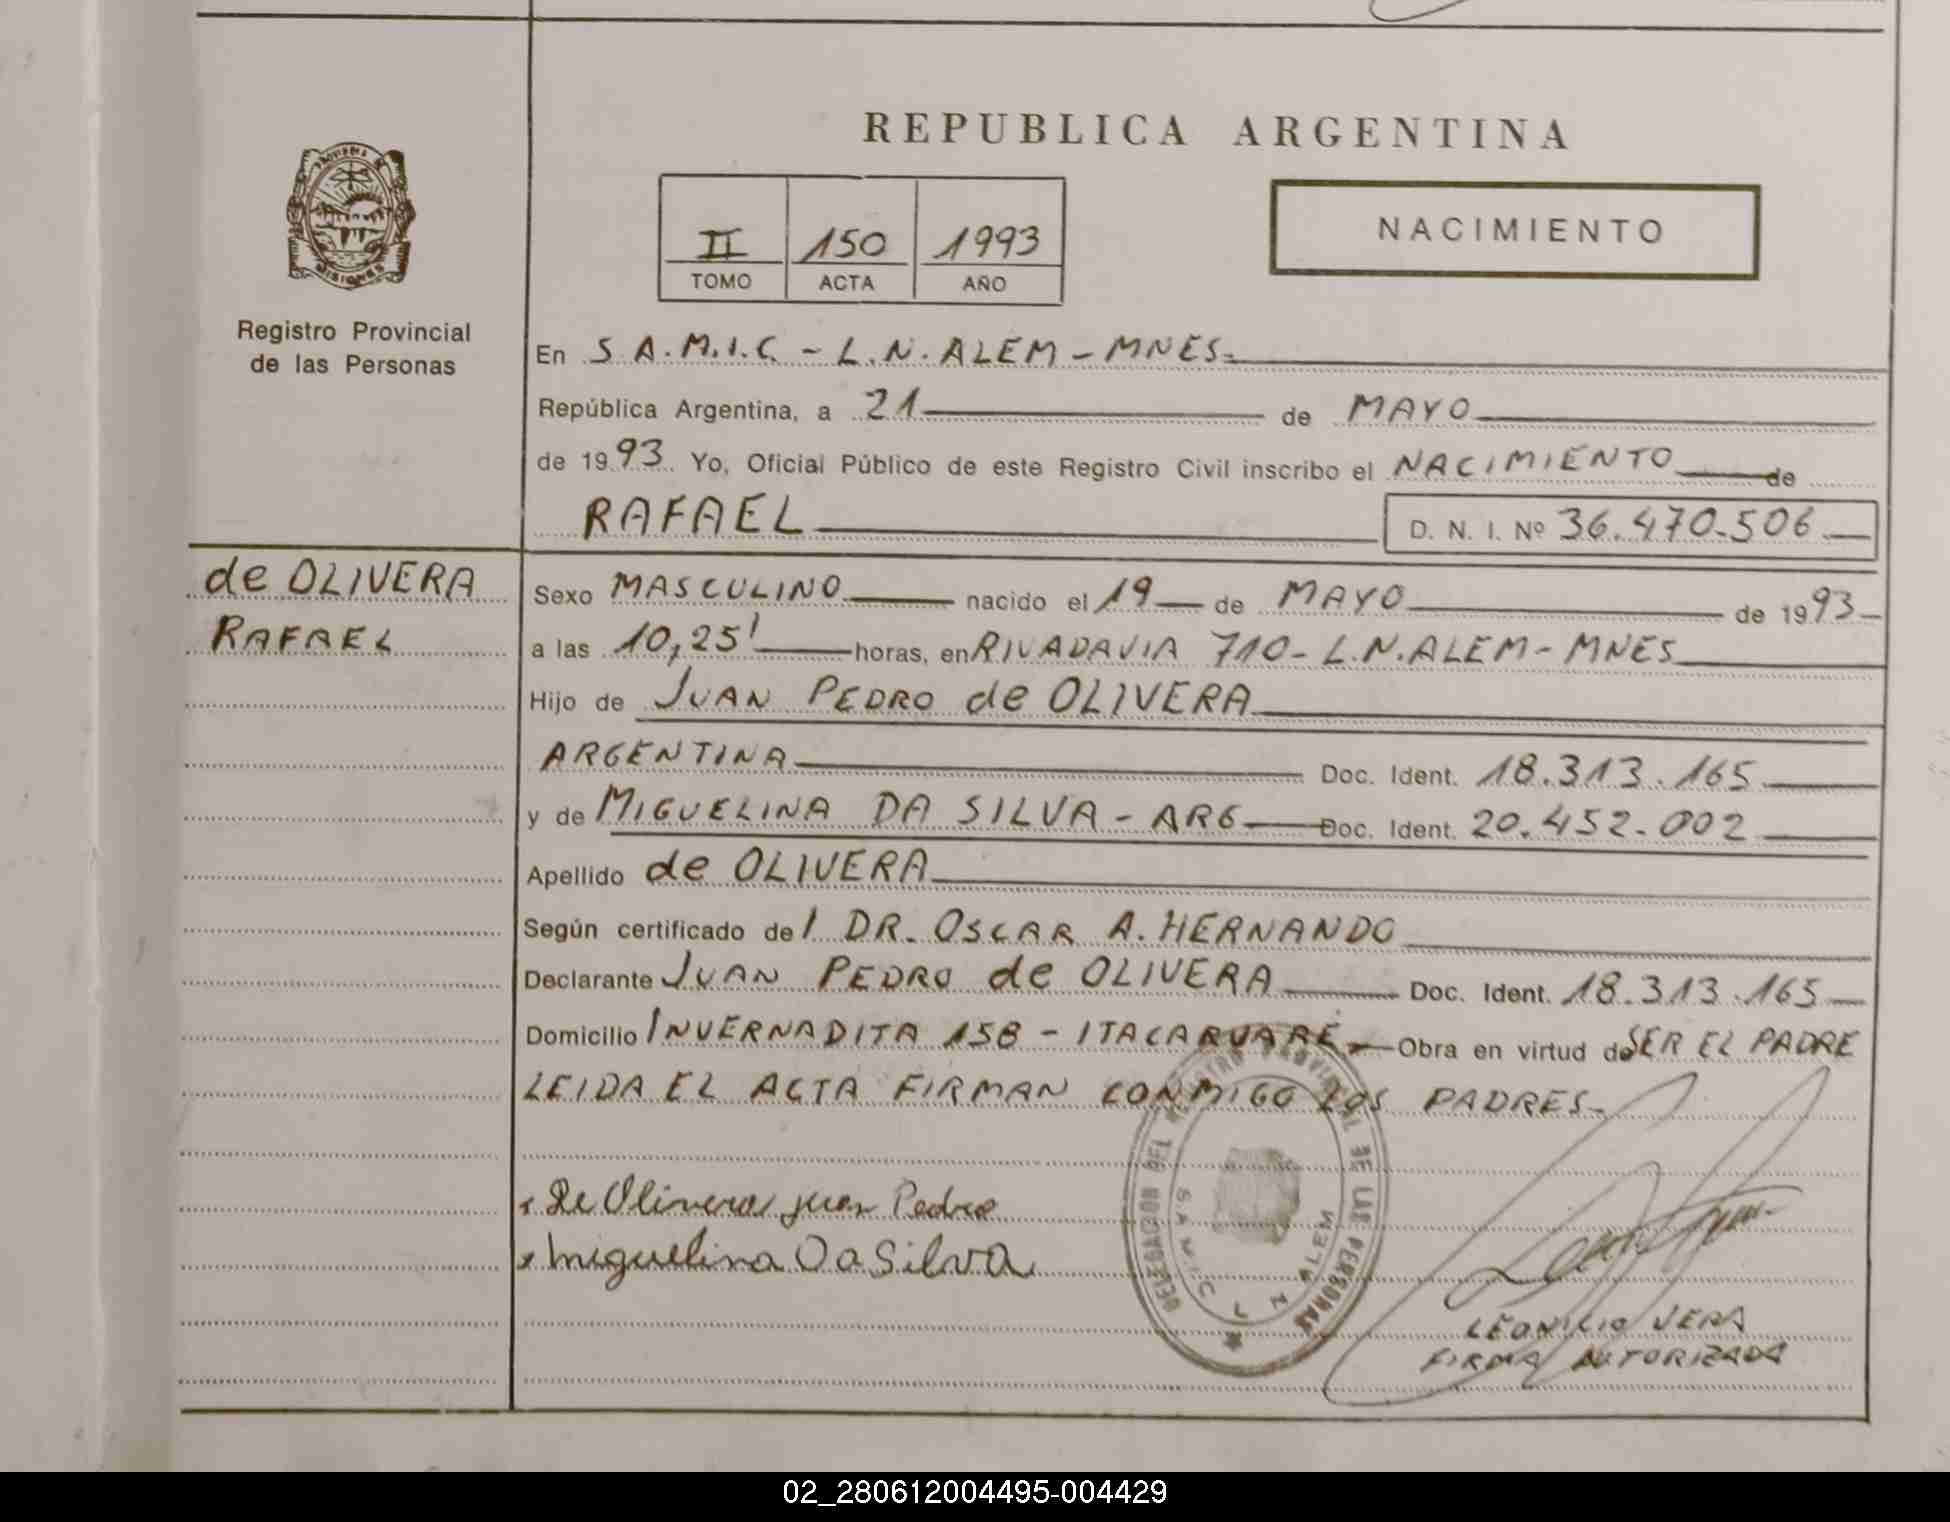 REPUBLICA ARGENTINA
PROVINCIA DE
MISIONES
II 150 1993
TOMO ACTA AÑO
NACIMIENTO
Registro Provincial
de las Personas
En S.A.M.I.C. - L.N. ALEM - MNES.
República Argentina, a 21 de MAYO
de 1993. Yo, Oficial Público de este Registro Civil inscribo el NACIMIENTO de
RAFAEL D. N. I. Nº 36.470.506
de OLIVERA
RAFAEL
Sexo MASCULINO nacido el 19 de MAYO de 1993
a las 10,25' horas, en RIVADAVIA 710 - L.N. ALEM - MNES
Hijo de JUAN PEDRO de OLIVERA
ARGENTINA Doc. Ident. 18.313.165
y de MIGUELINA DA SILVA - ARG Doc. Ident. 20.452.002
Apellido de OLIVERA
Según certificado de l DR. OSCAR A. HERNANDO
Declarante JUAN PEDRO de OLIVERA Doc. Ident. 18.313.165
Domicilio INVERNADITA 158 - ITACARUARE Obra en virtud de SER EL PADRE
LEIDA EL ACTA FIRMAN CONMIGO LOS PADRES.
x De Olivera juan Pedro
x Miguelina Da Silva
DELEGACION DEL REGISTRO PROVINCIAL DE LAS PERSONAS
SAMIC L N ALEM
LEONILIO VERA
FIRMA AUTORIZADA
02_280612004495-004429